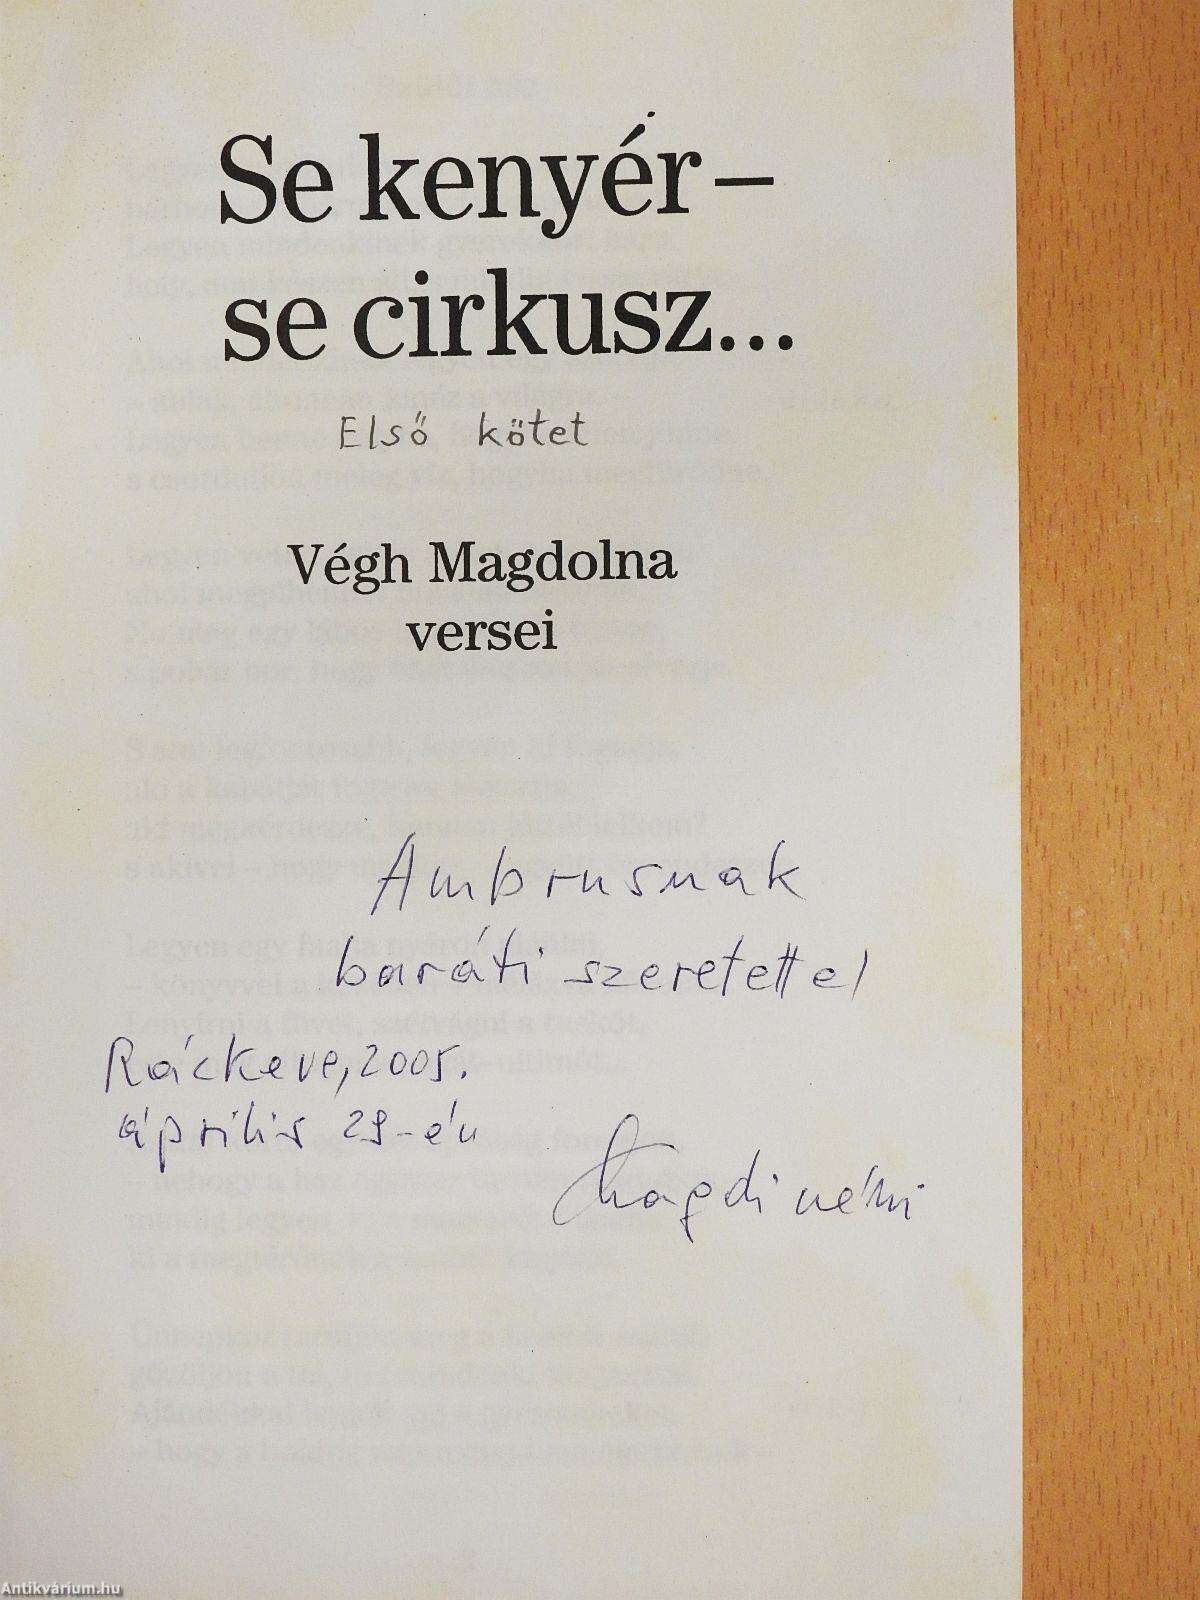 Se kenyér –
se cirkusz...
Első kötet
Végh Magdolna
versei
Ambrusnak
baráti szeretettel
Ráckeve, 2005.
április 29-én
Magdi néni
Antikvárium.hu